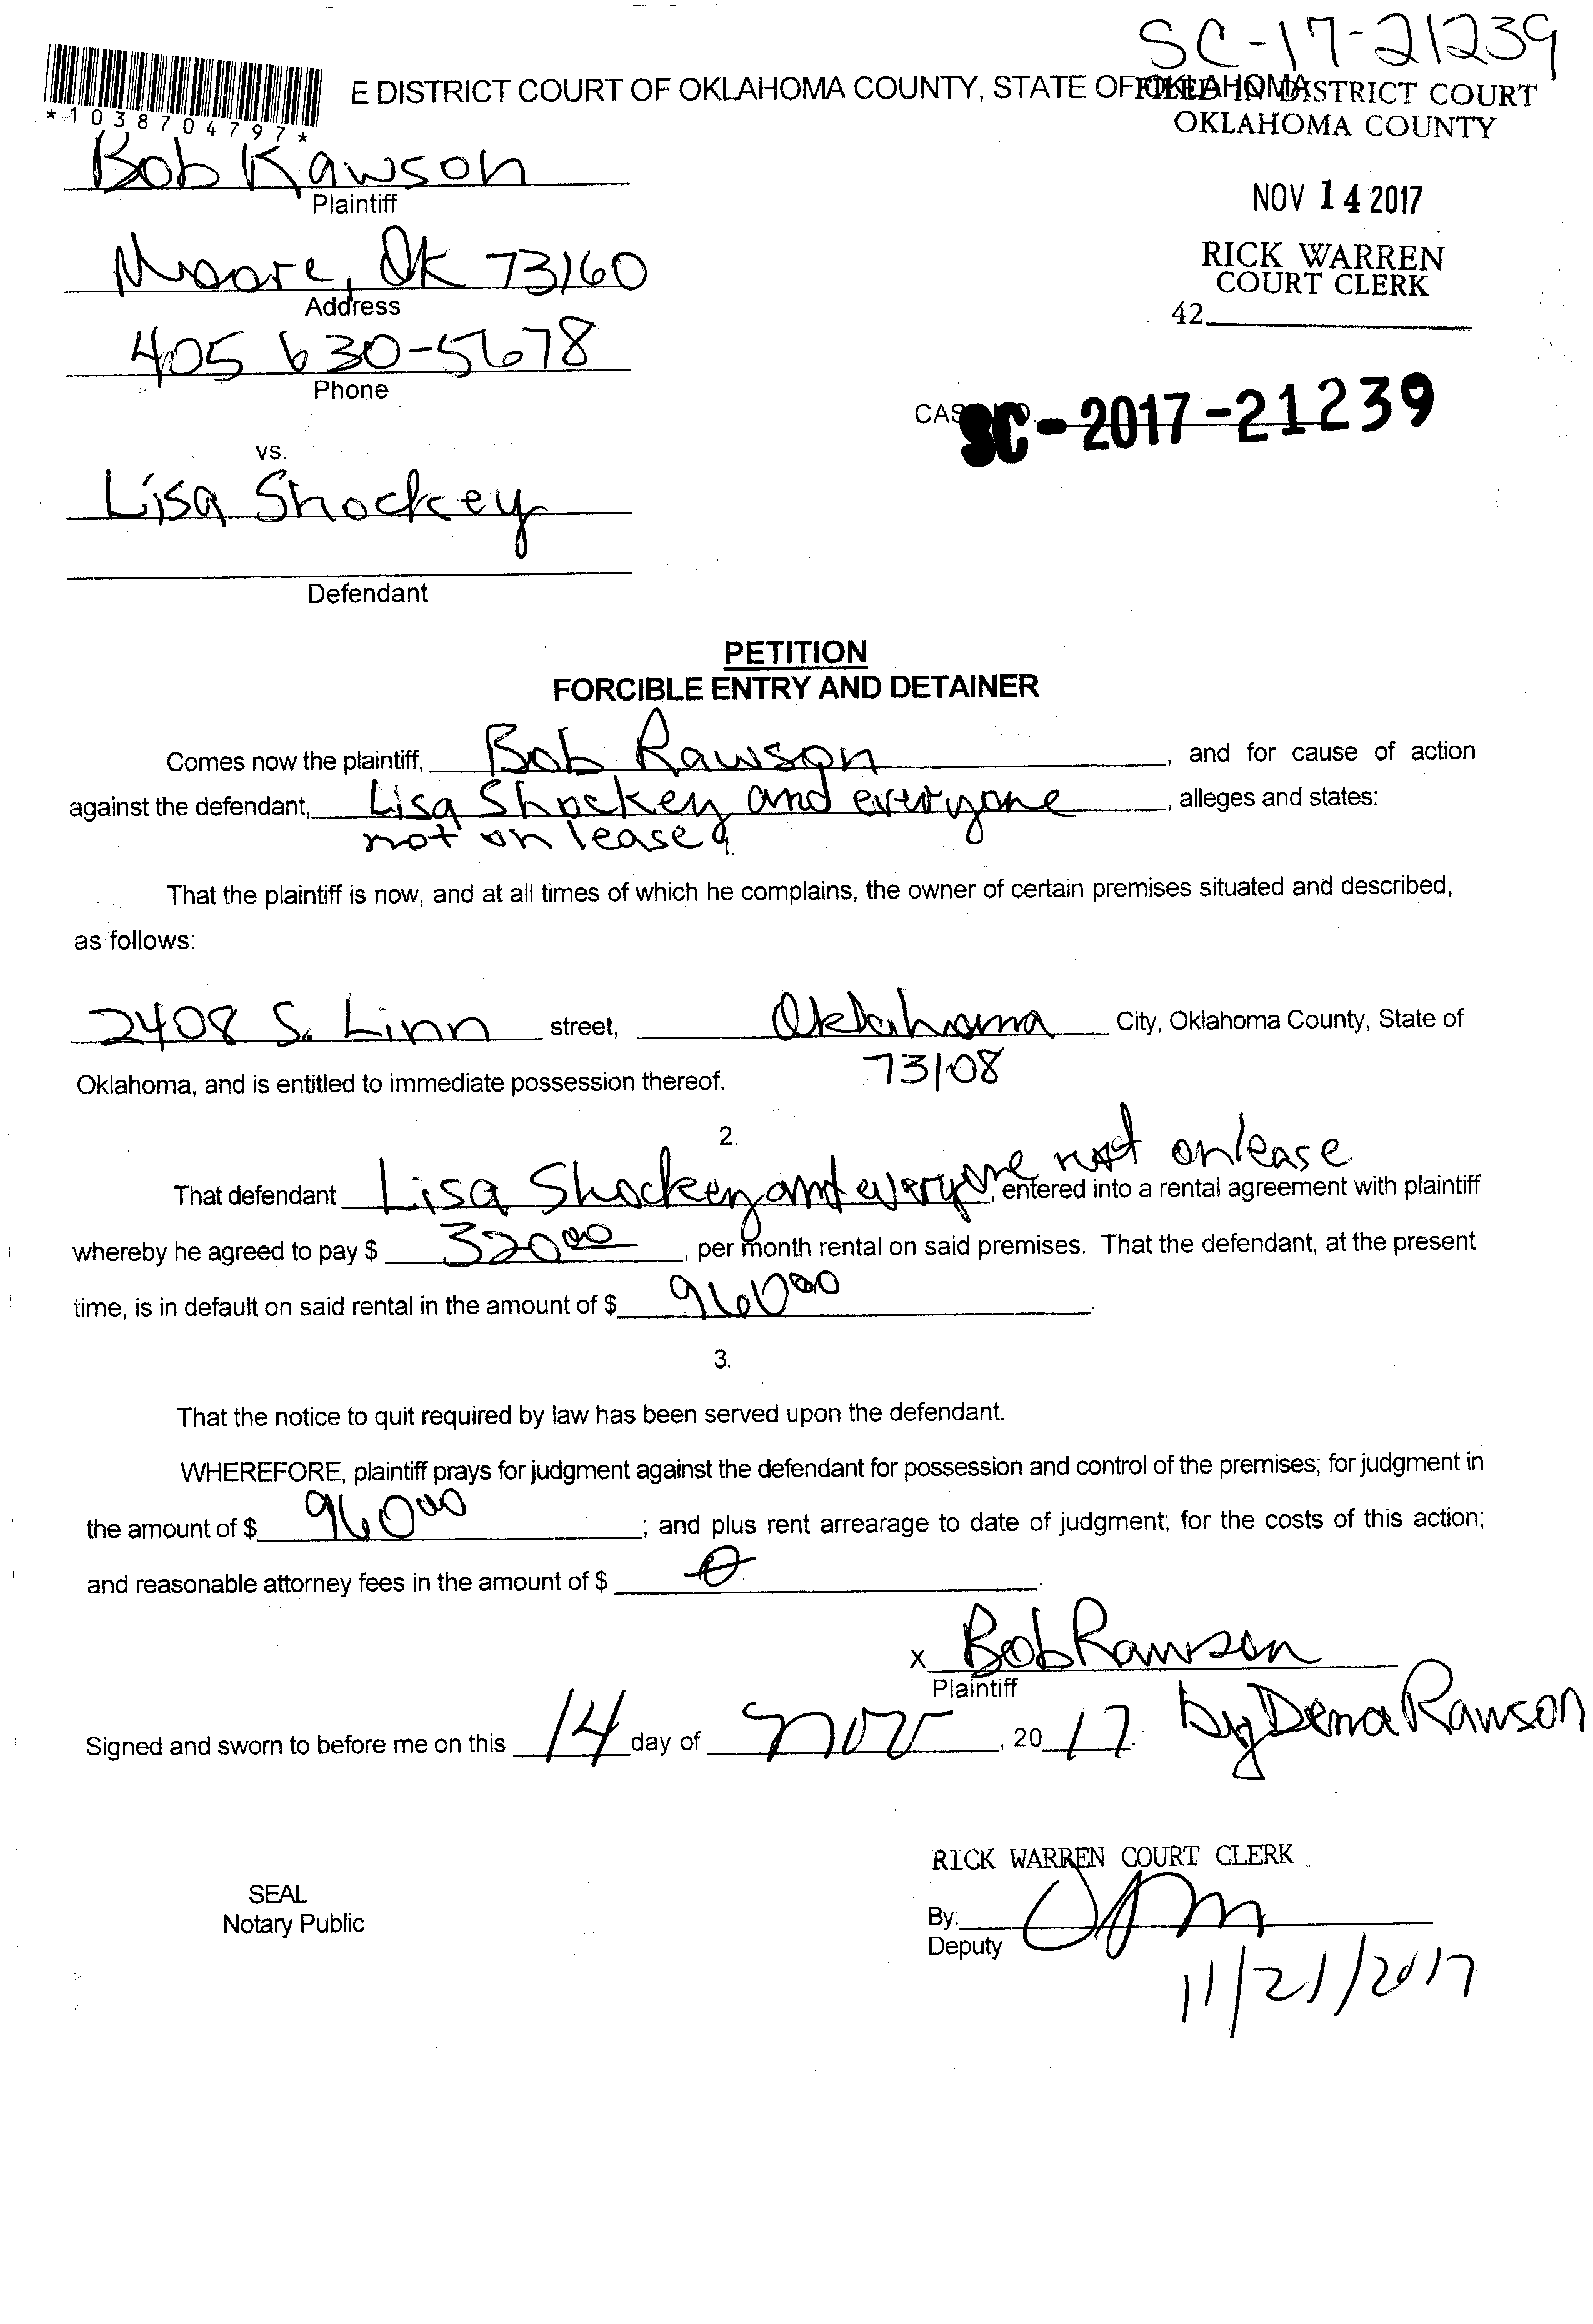 SC-17-21239
E DISTRICT COURT OF OKLAHOMA COUNTY, STATE OF OKLAHOMA
FILED IN DISTRICT COURT
OKLAHOMA COUNTY
*1038704797*
Bob Rawson
Plaintiff
NOV 14 2017
Moore, OK 73160
Address
RICK WARREN
COURT CLERK
42
405 630-5678
Phone
SC-2017-21239
vs.
Lisa Shockey
Defendant
PETITION
FORCIBLE ENTRY AND DETAINER
Comes now the plaintiff, Bob Rawson, and for cause of action
against the defendant, Lisa Shockey and everyone, alleges and states:
not on lease
1.
That the plaintiff is now, and at all times of which he complains, the owner of certain premises situated and described,
as follows:
2408 S. Linn street, Oklahoma City, Oklahoma County, State of
73108
Oklahoma, and is entitled to immediate possession thereof.
2.
That defendant Lisa Shockey and everyone not on lease, entered into a rental agreement with plaintiff
whereby he agreed to pay $ 320 00, per month rental on said premises. That the defendant, at the present
time, is in default on said rental in the amount of $ 960 00.
3.
That the notice to quit required by law has been served upon the defendant.
WHEREFORE, plaintiff prays for judgment against the defendant for possession and control of the premises; for judgment in
the amount of $ 960 00; and plus rent arrearage to date of judgment; for the costs of this action;
and reasonable attorney fees in the amount of $ 0.
x Bob Rawson
Plaintiff
by Dena Rawson
Signed and sworn to before me on this 14 day of Nov, 20 17.
RICK WARREN COURT CLERK
SEAL
Notary Public
By:
Deputy
11/21/2017